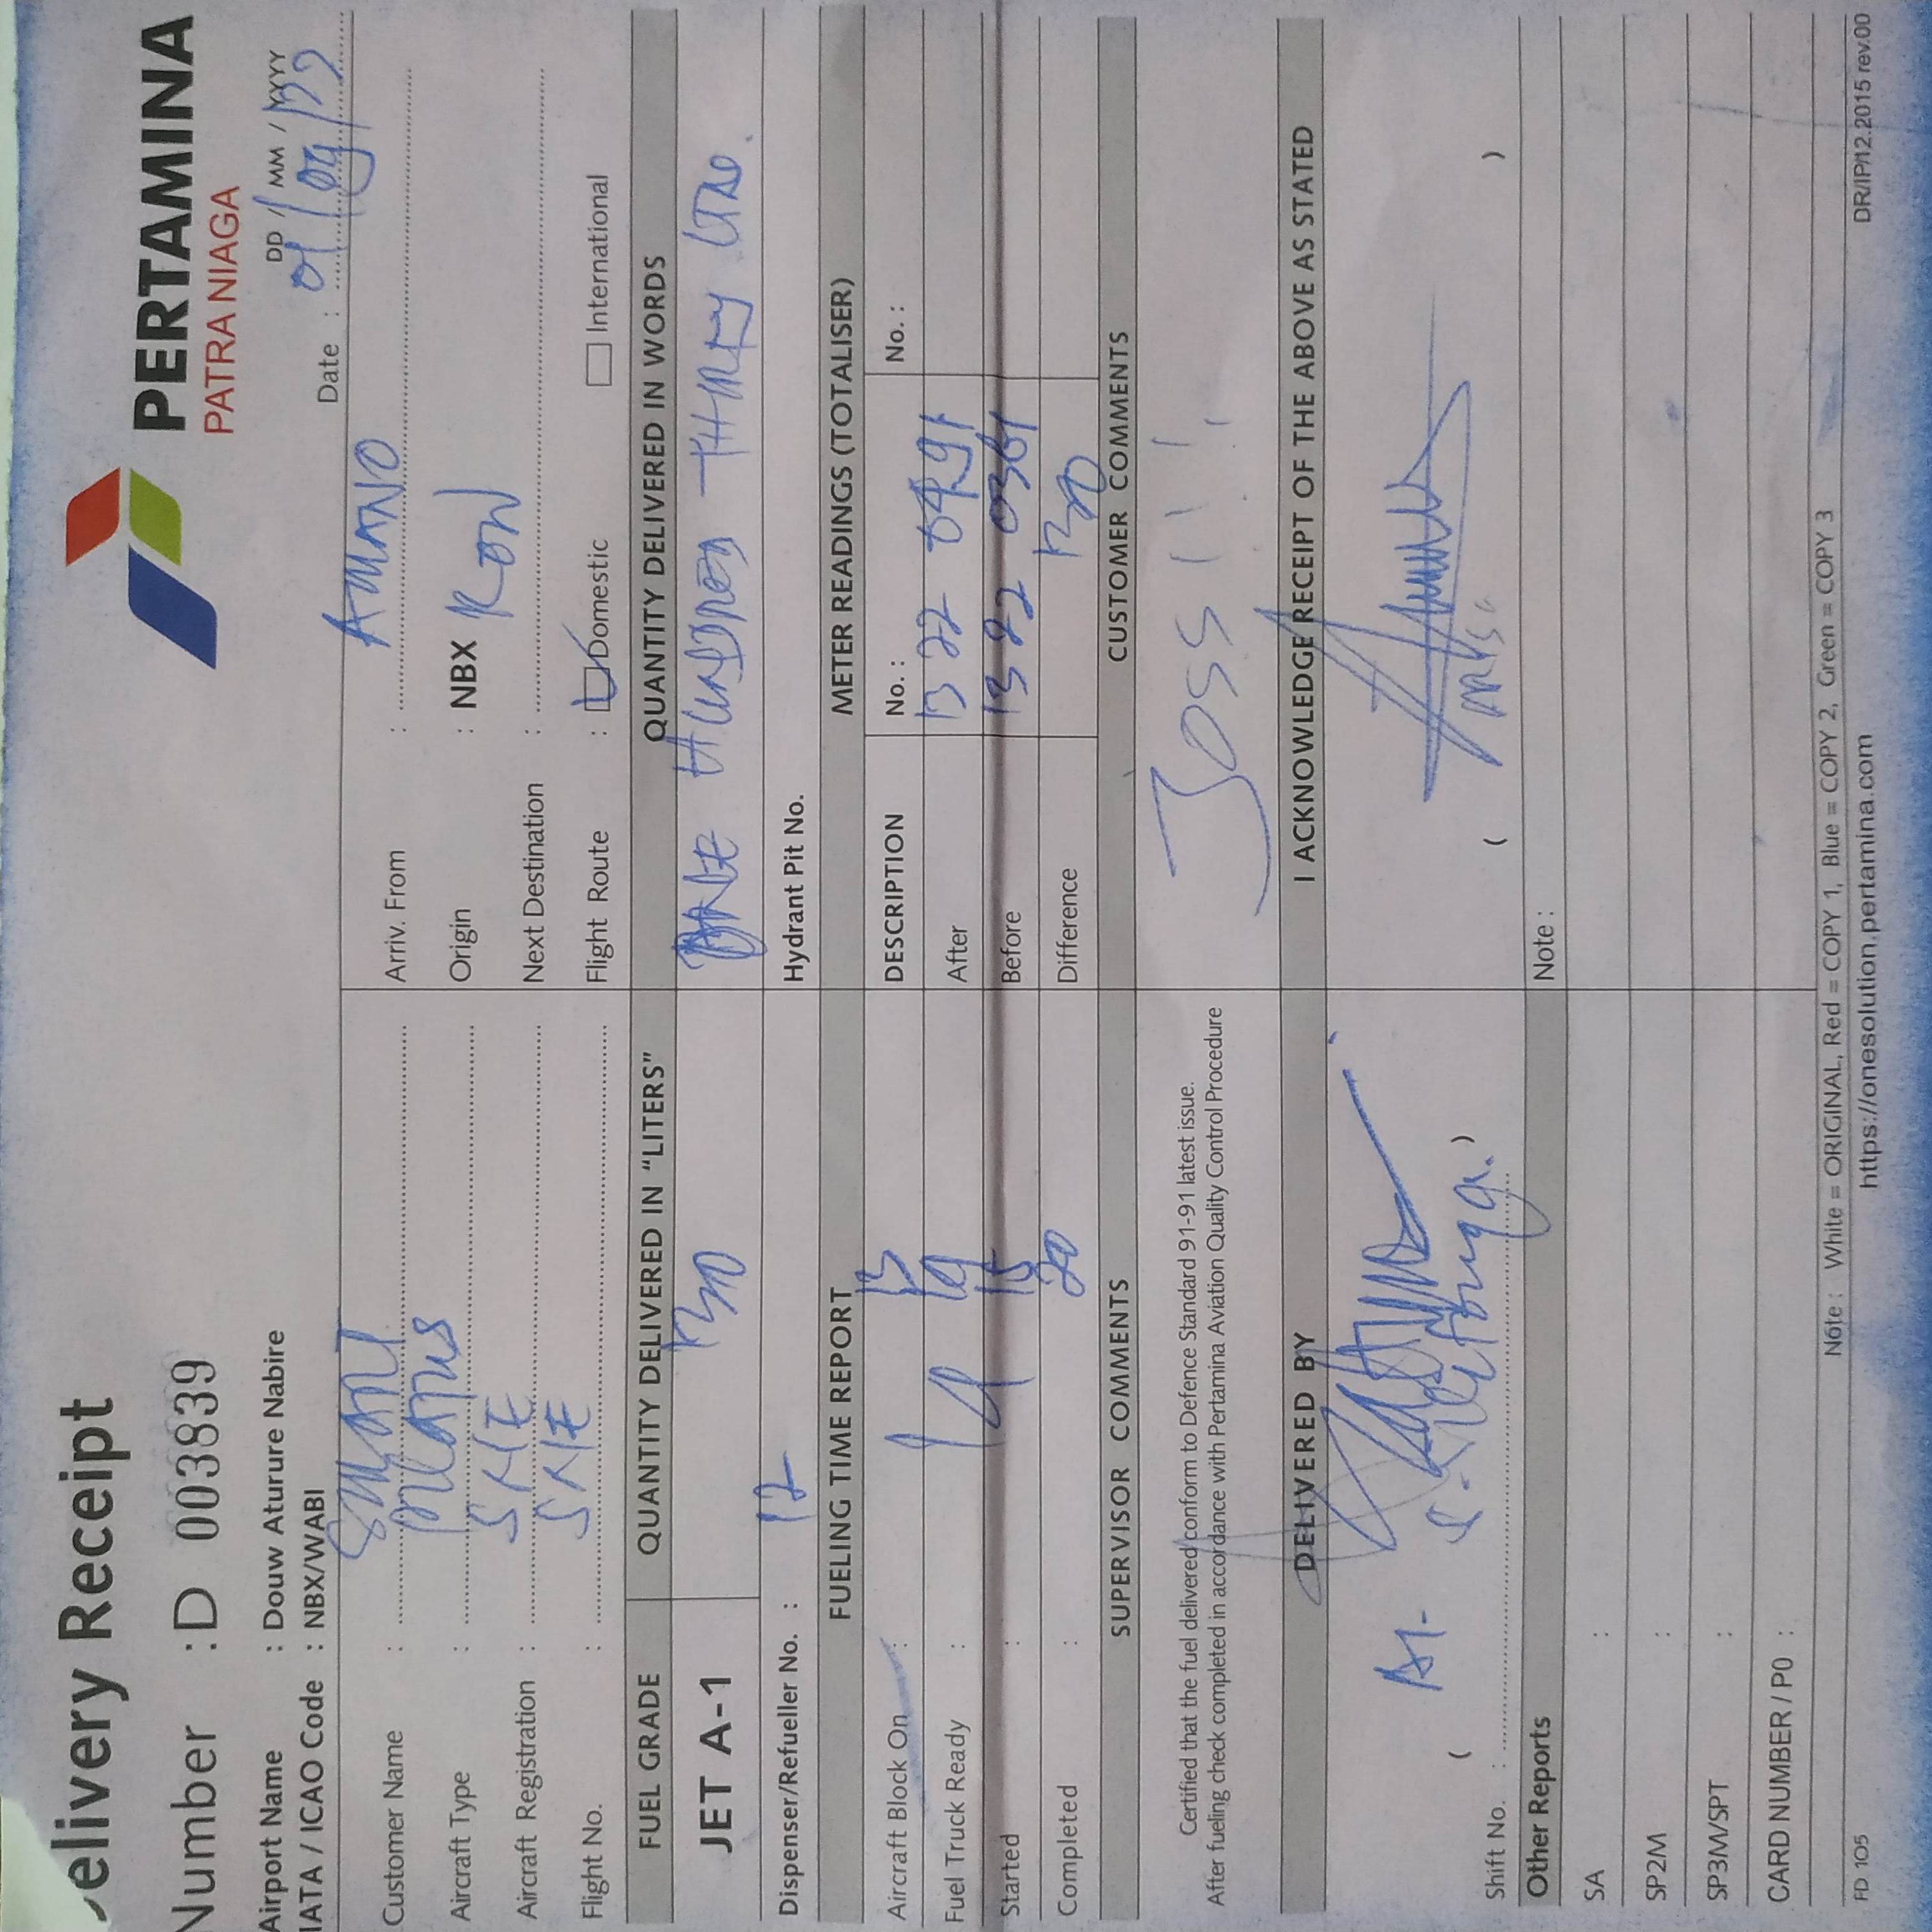 Delivery Receipt
PERTAMINA
PATRA NIAGA
Number : D 003839
DD / MM / YYYY
Airport Name : Douw Aturure Nabire
Date : 01/09/22
IATA / ICAO Code : NBX/WABI
Customer Name : SMART
Arriv. From :
Aircraft Type :
Origin : NBX
Aircraft Registration : SNE
Next Destination :
Flight No. : SNE
Flight Route : Domestic International
FUEL GRADE QUANTITY DELIVERED IN "LITERS" QUANTITY DELIVERED IN WORDS
JET A-1 130 ONE HUNDRED THIRTY
Dispenser/Refueller No. : 12
Hydrant Pit No.
FUELING TIME REPORT METER READINGS (TOTALISER)
Aircraft Block On : 13
DESCRIPTION No. : No. :
Fuel Truck Ready :
After 1322 0491
Started : 15
Before 1322 0361
Completed : 20
Difference 130
SUPERVISOR COMMENTS CUSTOMER COMMENTS
Certified that the fuel delivered conform to Defence Standard 91-91 latest issue.
After fueling check completed in accordance with Pertamina Aviation Quality Control Procedure
JOSS!!!
DELIVERED BY I ACKNOWLEDGE RECEIPT OF THE ABOVE AS STATED
Shift No. :
Other Reports Note :
SA :
SP2M :
SP3M/SPT :
CARD NUMBER / PO :
Note : White = ORIGINAL, Red = COPY 1, Blue = COPY 2, Green = COPY 3
FD 105 https://onesolution.pertamina.com DR/IP/12.2015 rev.00